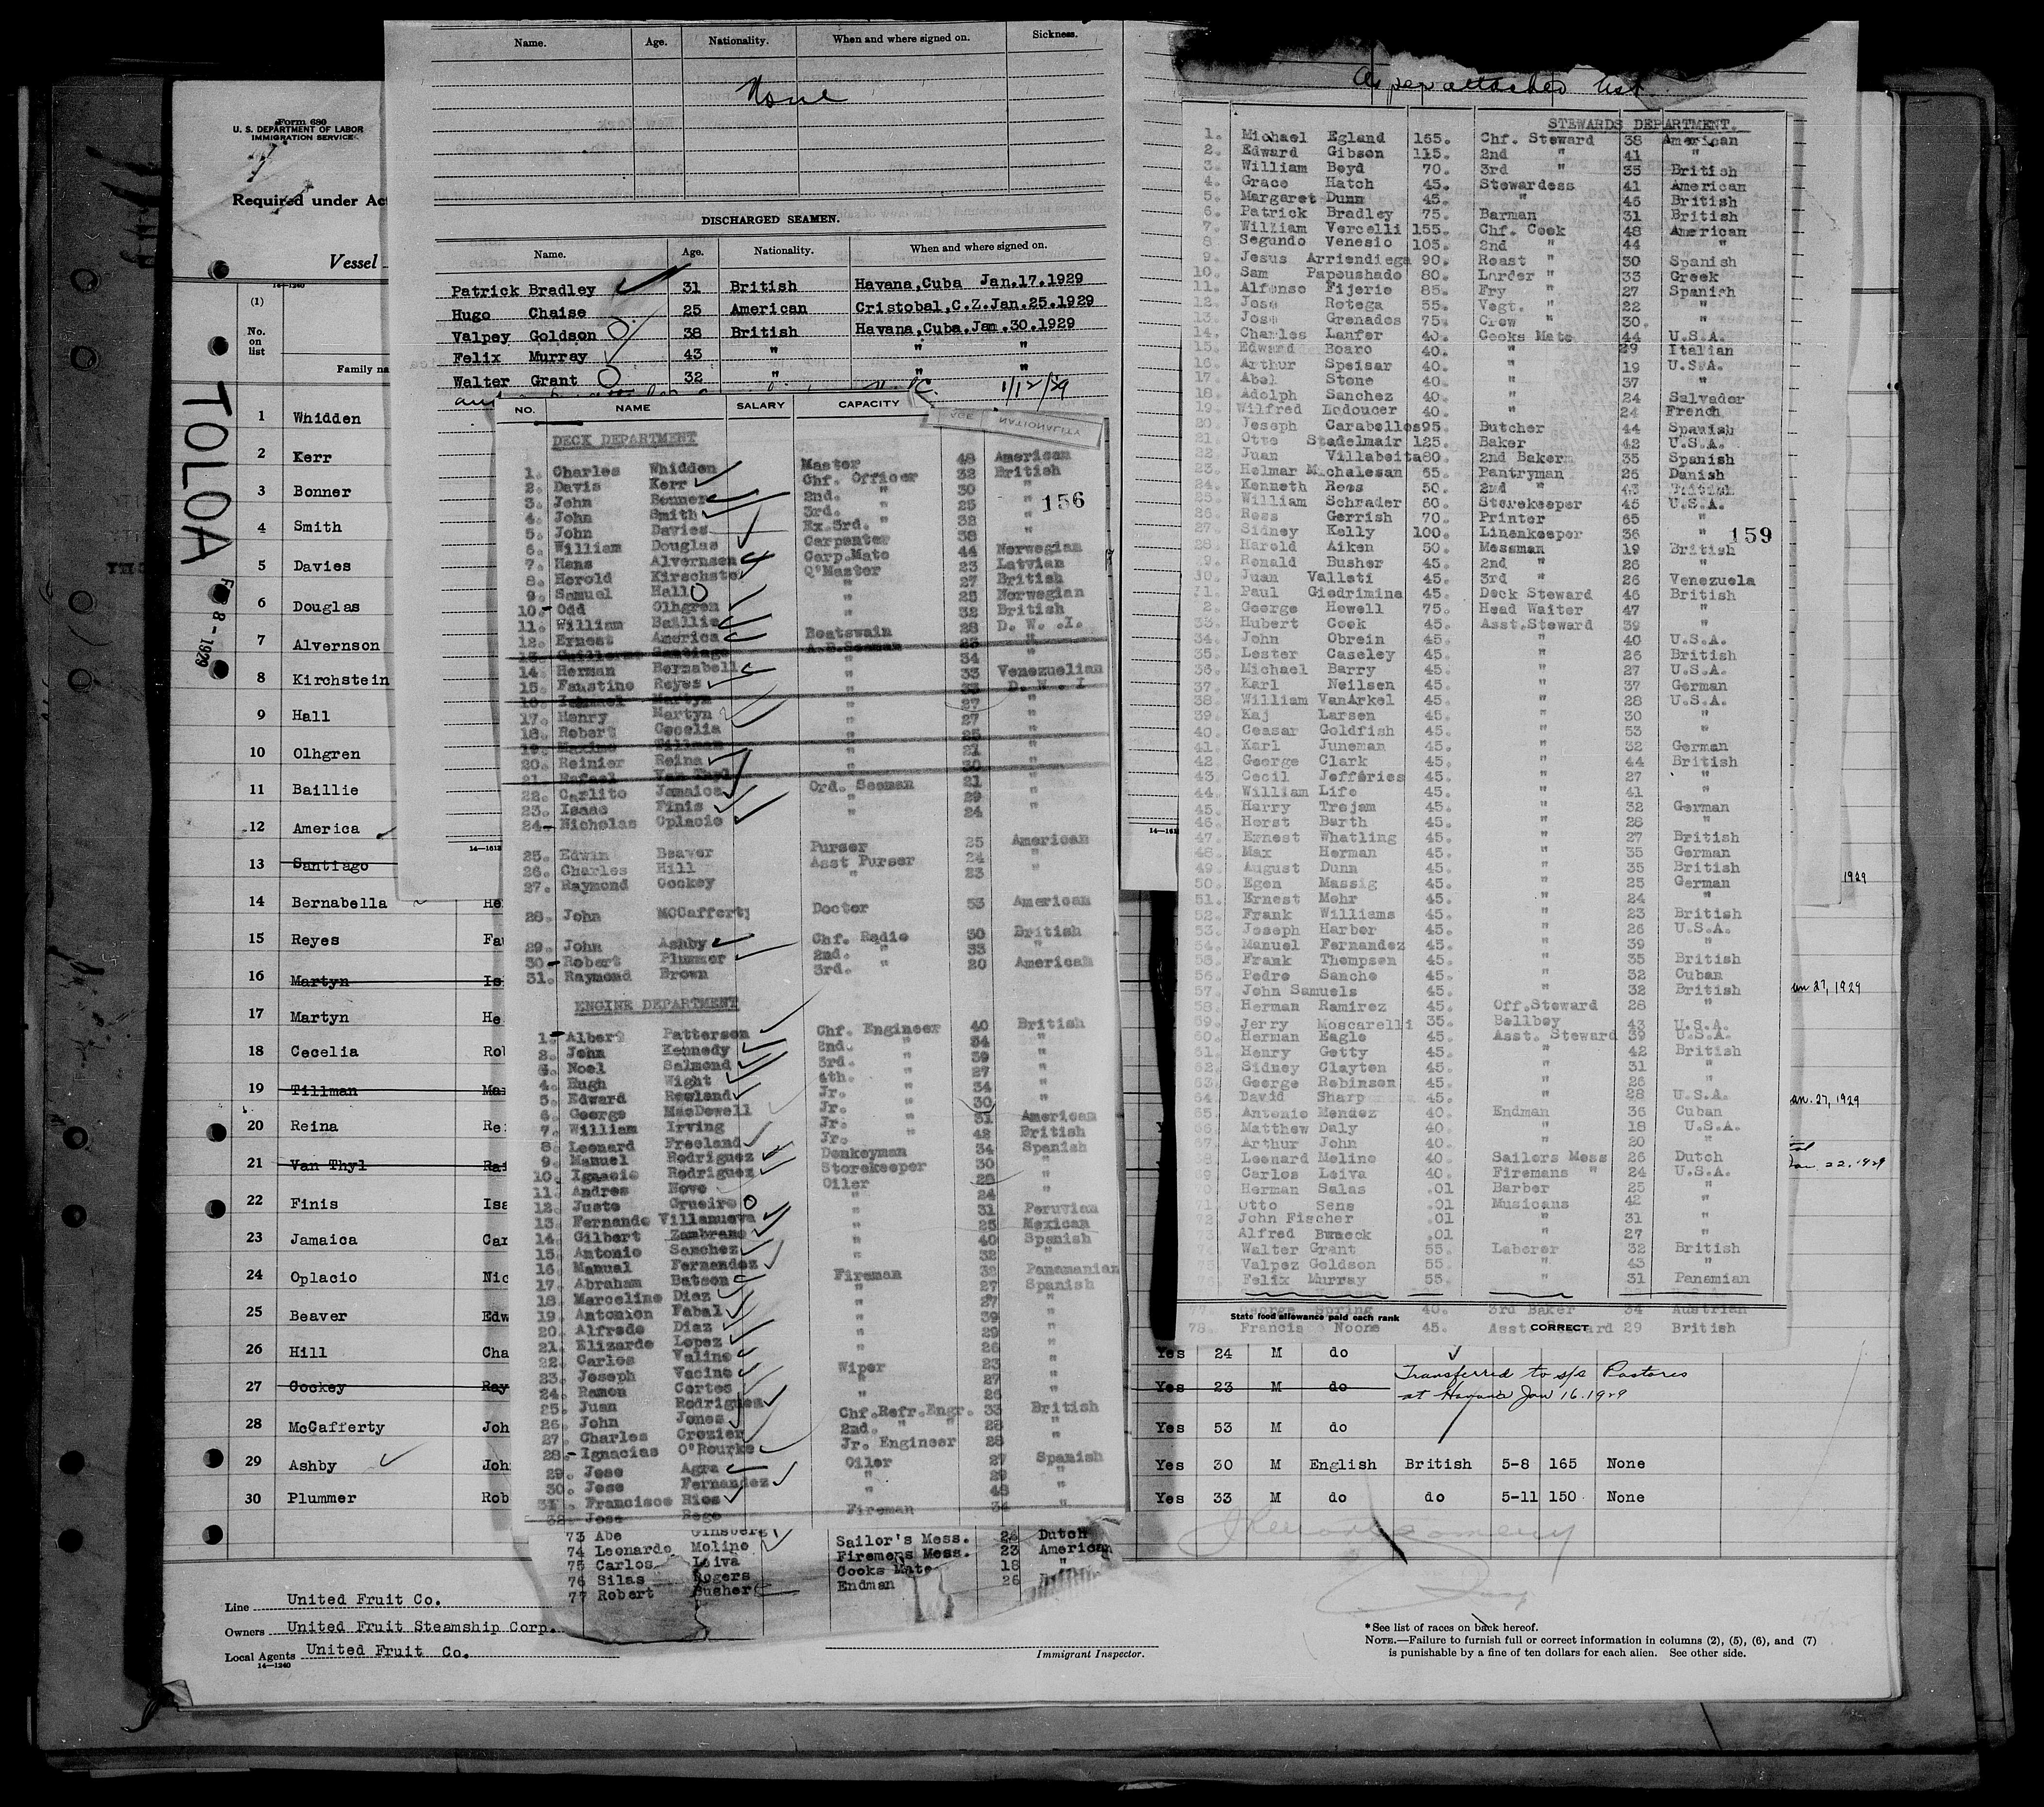 Form 680
U. S. DEPARTMENT OF LABOR
IMMIGRATION SERVICE
Required under Act
Vessel
14-1240
(1)
No. on list
Family na
TOLOA
FEB 8-1929
1 Whidden
2 Kerr
3 Bonner
4 Smith
5 Davies
6 Douglas
7 Alvernson
8 Kirchstein
9 Hall
10 Olhgren
11 Baillie
12 America
13 Santiago
14 Bernabella He
15 Reyes Fau
16 Martyn Is
17 Martyn He
18 Cecelia Rob
19 Tillman Max
20 Reina Re
21 Van Thyl Raf
22 Finis Isa
23 Jamaica Car
24 Oplacio Nic
25 Beaver Edw
26 Hill Cha
27 Cockey Ray
28 McCafferty Joh
29 Ashby Joh
30 Plummer Rob
Line United Fruit Co.
Owners United Fruit Steamship Corp.
Local Agents United Fruit Co.
14-1240
Name. Age. Nationality. When and where signed on. Sickness.
None
DISCHARGED SEAMEN.
Name. Age. Nationality. When and where signed on.
Patrick Bradley 31 British Havana,Cuba Jan.17.1929
Hugo Chaise 25 American Cristobal,C.Z.Jan.25.1929
Valpey Goldson 38 British Havana,Cuba.Jan.30.1929
Felix Murray 43 " " "
Walter Grant 32 " " "
1/12/29
NO. NAME SALARY CAPACITY AGE NATIONALITY
DECK DEPARTMENT
1. Charles Whidden Master 48 American
2. Davis Kerr Chf. Officer 32 British
3. John Bonner 2nd. " 30 "
4. John Smith 3rd. " 25 "
5. John Davies Ex.3rd. " 32 "
6. William Douglas Carpenter 38 "
7. Hans Alvernsen Carp.Mate 44 Norwegian
8. Herold Kirschste Q'Master 23 Latvian
9. Samuel Hall " 27 British
10. Odd Olhgren " 25 Norwegian
11. William Baillie " 32 British
12. Ernest America Boatswain 28 D. W. .I.
13. Guillermo Santiago A.B.Seaman 23 "
14. Herman Bernabell " 34 "
15. Faustino Reyes " 33 Venezuelian
16. Martyn " 33 D. W. I
17. Henry Martyn " 27 "
18. Robert Cecelia " 27 "
19. Maximo Tillman " 25 "
20. Reinier Reina " 21 "
21. Rafael Van Thyl " 30 "
22. Carlito Jamaica Ord. Seaman 21 "
23. Isaac Finis " 29 "
24. Nicholas Oplacio " 24 "
25. Edwin Beaver Purser 25 American
26. Charles Hill Asst Purser 24 "
27. Raymond Cockey " 23 "
28. John MCCafferty Doctor 53 American
29. John Ashby Chf. Radio 30 British
30. Robert Plummer 2nd. " 33 "
31. Raymond Brown 3rd. " 20 American
156
ENGINE DEPARTMENT
1. Albert Patterson Chf. Engineer 40 British
2. John Kennedy 2nd. " 34 "
3. Noel Salmond 3rd. " 39 "
4. Hugh Wight 4th. " 27 "
5. Edward Rowland Jr. " 34 "
6. George MacDowell Jr. " 30 "
7. William Irving Jr. " 31 American
8. Leonard Freeland Jr. " 42 British
9. Manuel Rodriguez Donkeyman 34 Spanish
10. Ignacio Rodriguez Storekeeper 30 "
11. Andres Novo Oiler 28 "
12. Justo Crueiro " 24 "
13. Fernando Villanueva " 31 Peruvian
14. Gilbert Zambrano " 25 Mexican
15. Antonio Sanchez " 40 Spanish
16. Manual Fernandez " 32 "
17. Abraham Batson Fireman 32 Panamanian
18. Marcelino Diaz " 27 Spanish
19. Antonion Fabal " 27 "
20. Alfredo Diaz " 39 "
21. Elizarde Lopez " 29 "
22. Carlos Valino " 26 "
23. Joseph Vacino Wiper 23 "
24. Ramon Cortes " 27 "
25. Juan Rodrigues " 26 "
26. John Jones Chf.Refr.Engr. 33 British
27. Charles Crozier 2nd. " " 28 "
28. Ignacias O'Rourke Jr. Engineer 28 "
29. Jose Agra Oiler 27 Spanish
30. Jose Fernandez " 29 "
31. Francisco Rios " 48 "
32. Jose Rego Fireman 34 "
73 Abe Ginsberg
74 Leonardo Molino Sailor's Mess. 26 Dutch
75 Carlos Leiva Firemens Mess. 23 American
76 Silas Rogers Cooks Mate 18 "
77 Robert Busher Endman 26
As per attached list
STEWARDS DEPARTMENT.
1. Michael Egland 165. Chf. Steward 38 American
2. Edward Gibson 115. 2nd " 41 "
3. William Boyd 70. 3rd " 35 British
4. Grace Hatch 45. Stewardess 41 American
5. Margaret Dunn 45. " 46 British
6. Patrick Bradley 75. Barman 31 British
7. William Vercelli 155. Chf. Cook 48 American
8 Segundo Venesio 105. 2nd " 44 "
9. Jesus Arriendiega 90. Roast " 30 Spanish
10. Sam Papoushado 80. Larder " 33 Greek
11. Alfonso Fijerio 85. Fry " 27 Spanish
12. Jose Rotega 55. Vegt. " 22 "
13. Jose Grenados 75. Crew " 30. "
14. Charles Lanfer 40. Cooks Mate 44 U.S.A.
15. Edward Boaro 40. " 29 Italian
16. Arthur Speisar 40. " 19 U.S.A.
17. Abel Stone 40. " 37 "
18. Adolph Sanchez 40. " 24 Salvador
19. Wilfred Ledoucer 40. " 24 French
20. Joseph Carabellos 95. Butcher 44 Spanish
21. Otto Stadelmair 125. Baker 42 U.S.A.
22. Juan Villabeita 80. 2nd Baker 35 Spanish
23. Helmar Michalesan 65. Pantryman 26 Danish
24. Kenneth Rees 50. 2nd " 43 British
25. William Schrader 60. Storekeeper 45 U.S.A.
26. Ross Gerrish 70. Printer 65 "
27. Sidney Kelly 100. Linenkeeper 36 "
28. Harold Aiken 50. Messman 19 British
29. Ronald Busher 45. 2nd " 26 "
30. Juan Valleti 45. 3rd " 26 Venezuela
31. Paul Giedrimina 45. Deck Steward 46 British
2. George Howell 75. Head Waiter 47 "
33. Hubert Cook 45. Asst.Steward 39 "
34. John Obrein 45. " 40 U.S.A.
35. Lester Caseley 45. " 26 British
36. Michael Barry 45. " 27 U.S.A.
37. Karl Neilsen 45. " 37 German
38. William VanArkel 45. " 28 U.S.A.
39. Kaj Larsen 45. " 30 "
40. Ceasar Goldfish 45. " 53 "
41. Karl Juneman 45. " 32 German
42. George Clark 45. " 44 British
43. Cecil Jefferies 45. " 27 "
44. William Life 45. " 41 "
45. Harry Trojam 45. " 32 German
46. Horst Barth 45. " 28 "
47. Ernest Whatling 45. " 27 British
48. Max Herman 45. " 35 German
49. August Dunn 45. " 35 British
50. Egon Massig 45. " 25 German
51. Ernest Mohr 45. " 24 "
52. Frank Williams 45. " 23 British
53. Joseph Harber 45. " 26 U.S.A.
54. Manuel Fernandez 45. " 39 "
55. Frank Thompson 45. " 35 British
56. Pedro Sancho 45. " 32 Cuban
57. John Samuels 45. " 32 British
58. Herman Ramirez 45. Off.Steward 28 "
59. Jerry Moscarelli 35. Bellboy 43 U.S.A.
60. Herman Eagle 45. Asst. Steward 39 U.S.A.
61. Henry Getty 45. " 42 British
62. Sidney Clayton 45. " 31 "
63. George Robinson 45. " 26 "
64. David Sharp 45. " 28 U.S.A.
65. Antonio Mendez 40. Endman 36 Cuban
66. Matthew Daly 40. " 18 U.S.A.
67. Arthur John 40. " 20 "
68. Leonard Meline 40. Sailors Mess 26 Dutch
69. Carlos Leiva 40. Firemans " 24 U.S.A.
70. Herman Salas .01 Barber 25 "
71. Otto Sens .01 Musicans 42 "
72. John Fischer .01 " 31 "
3 Alfred .01 " 27 "
74 Walter Grant 55. Laborer 32 British
75 Valpez Goldson 55. " 43 "
76 Felix Murray 55. " 31 Panamian
77. George Spring 40. 3rd Baker 34 Austrian
78. Francis Noone 45. Asst. Steward 29 British
State food allowance paid each rank
CORRECT
159
1929
Jan 27, 1929
Jan. 27, 1929
Jan. 22, 1929
Yes 24 M do
Yes 23 M do Transferred to s/s Pastores
at Havana Jan 16.1929
Yes 53 M do
Yes 30 M English British 5-8 165 None
Yes 33 M do do 5-11 150 None
Immigrant Inspector.
*See list of races on back hereof.
NOTE.—Failure to furnish full or correct information in columns (2), (5), (6), and (7)
is punishable by a fine of ten dollars for each alien. See other side.